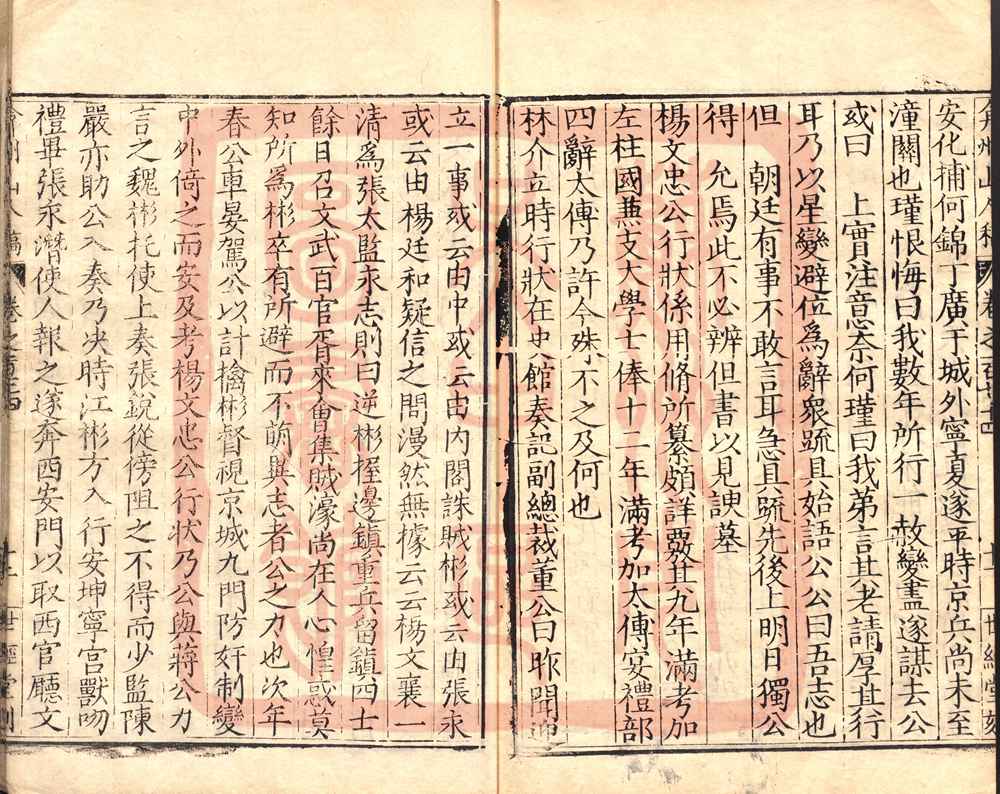 弇州山人稿 卷之一百七十四 十一 世經堂刻
安化捕何錦丁廣于城外寧夏遂平時京兵尚未至
潼關也瑾恨悔曰我數年所行一赦變盡遂謀去公
或曰 上實注意柰何瑾曰我弟言其老請厚其行
耳乃以星變避位為辭眾䟽具始語公公曰吾志也
但 朝廷有事不敢言耳急具䟽先後上明日獨公
得 允焉此不必辨但書以見諛墓
楊文忠公行狀係用脩所纂頗詳覈其九年滿考加
左柱國兼支大學士俸十二年滿考加太傅宴禮部
四辭太傅乃許今殊不之及何也
林介立時行狀在史館奏記副總裁董公曰昨聞迎
立一事或云由中或云由内閣誅賊彬或云由張永
或云由楊廷和疑信之間漫然無據云云楊文襄一
清為張太監永志則曰逆彬握邊鎮重兵留鎮四士
餘日召文武百官胥來會集賊濠尚在人心惶惑莫
知所為彬卒有所避而不萌與志者公之力也次年
春公車晏駕公以計擒彬督視京城九門防奸制變
中外倚之而安及考楊文忠公行狀乃公與蔣公力
言之魏彬托使上奏張銳從傍阻之不得而少監陳
嚴亦助公入奏乃決時江彬方入 行安坤寧宫獸吻
禮畢張永潛使人報之遂奔西安門以取西官廳文
弇州山人稿 卷之一百七十四 十二 世經堂刻